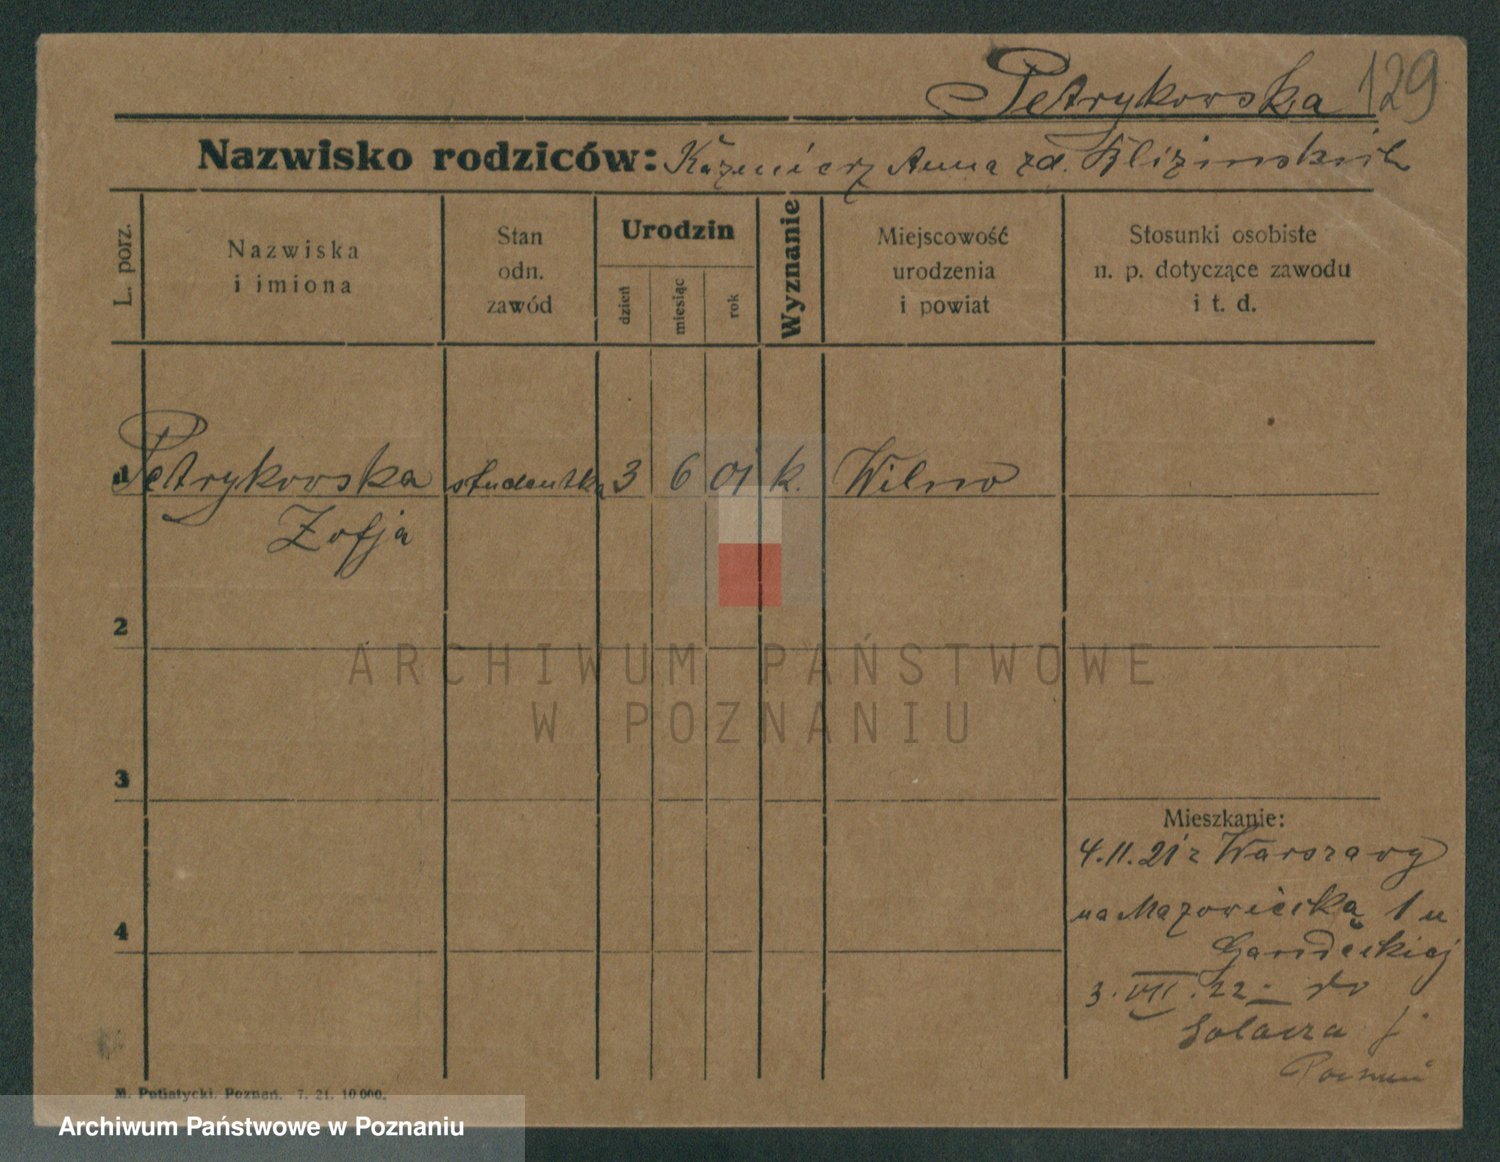 Petrykowska 129
Nazwisko rodziców: Kazimierz Anna zd. Blizinskich
L. porz.
Nazwiska
i imiona
Stan
odn.
zawód
Urodzin
dzień
miesiąc
rok
Wyznanie
Miejscowość
urodzenia
i powiat
Stosunki osobiste
n. p. dotyczące zawodu
i t. d.
1 Petrykowska studentka 3 6 01 k. Wilno
Zofja
2
3
4
Mieszkanie:
4.11.21 z Warszawy
na Mazowiecką 1 u
3.VII.22 do
Sołacza
Poznań
M. Putiatycki, Poznań. 7. 21. 10 000.
ARCHIWUM PAŃSTWOWE
W POZNANIU
Archiwum Państwowe w Poznaniu